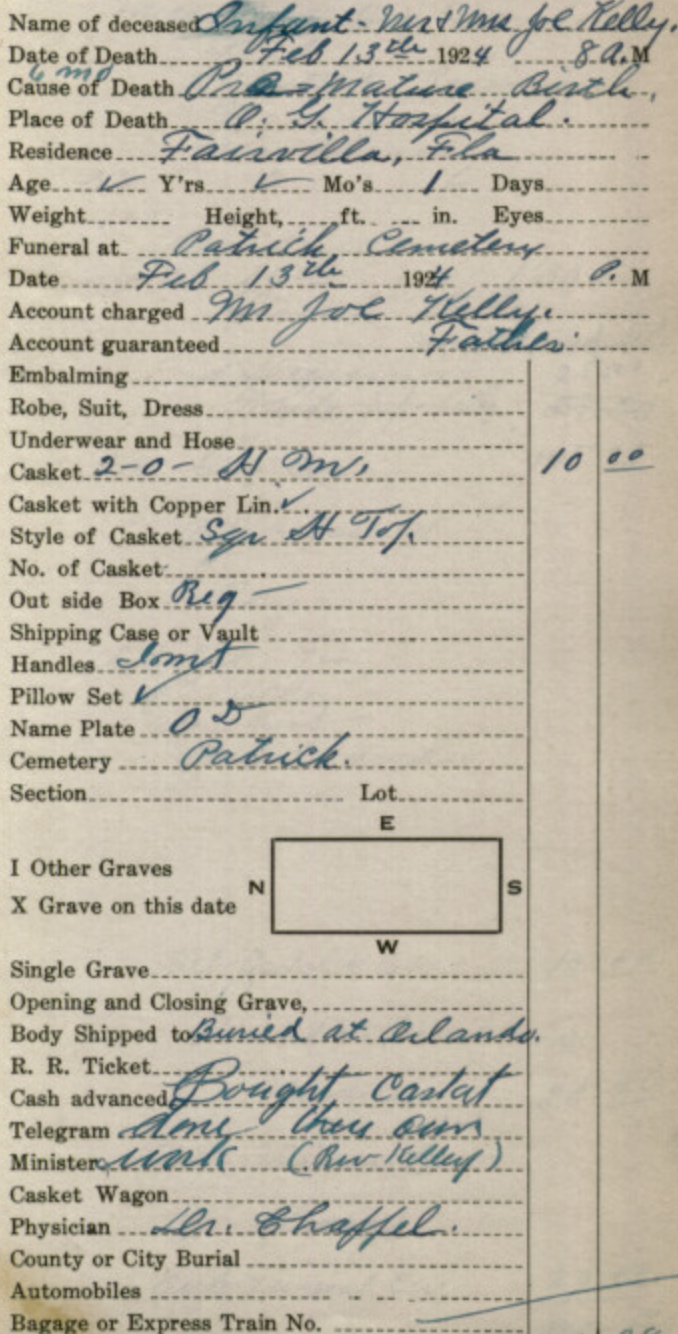 Name of deceased Infant - Mr & Mrs Joe Kelly.
Date of Death Feb 13th 1924 8 A.M
6 mo
Cause of Death Pre=mature Birth,
Place of Death O. G. Hospital.
Residence Fairvilla, Fla
Age ✓ Y'rs ✓ Mo's 1 Days
Weight Height, ft. in. Eyes
Funeral at Patrick Cemetery
Date Feb 13th 1924 P. M
Account charged Mr Joe Kelly.
Account guaranteed Father
Embalming
Robe, Suit, Dress
Underwear and Hose
Casket 2-0- H M. 10 00
Casket with Copper Lin. ✓
Style of Casket Sqr H Top.
No. of Casket
Out side Box Reg -
Shipping Case or Vault
Handles
Pillow Set ✓
Name Plate O D
Cemetery Patrick.
Section Lot
E
I Other Graves
N S
X Grave on this date
W
Single Grave
Opening and Closing Grave,
Body Shipped to Buried at Orlando.
R. R. Ticket
Cash advanced Bought Caskat
Telegram done their own
Minister work (Rev Kelley)
Casket Wagon
Physician Dr. Chaffel.
County or City Burial
Automobiles
Bagage or Express Train No.